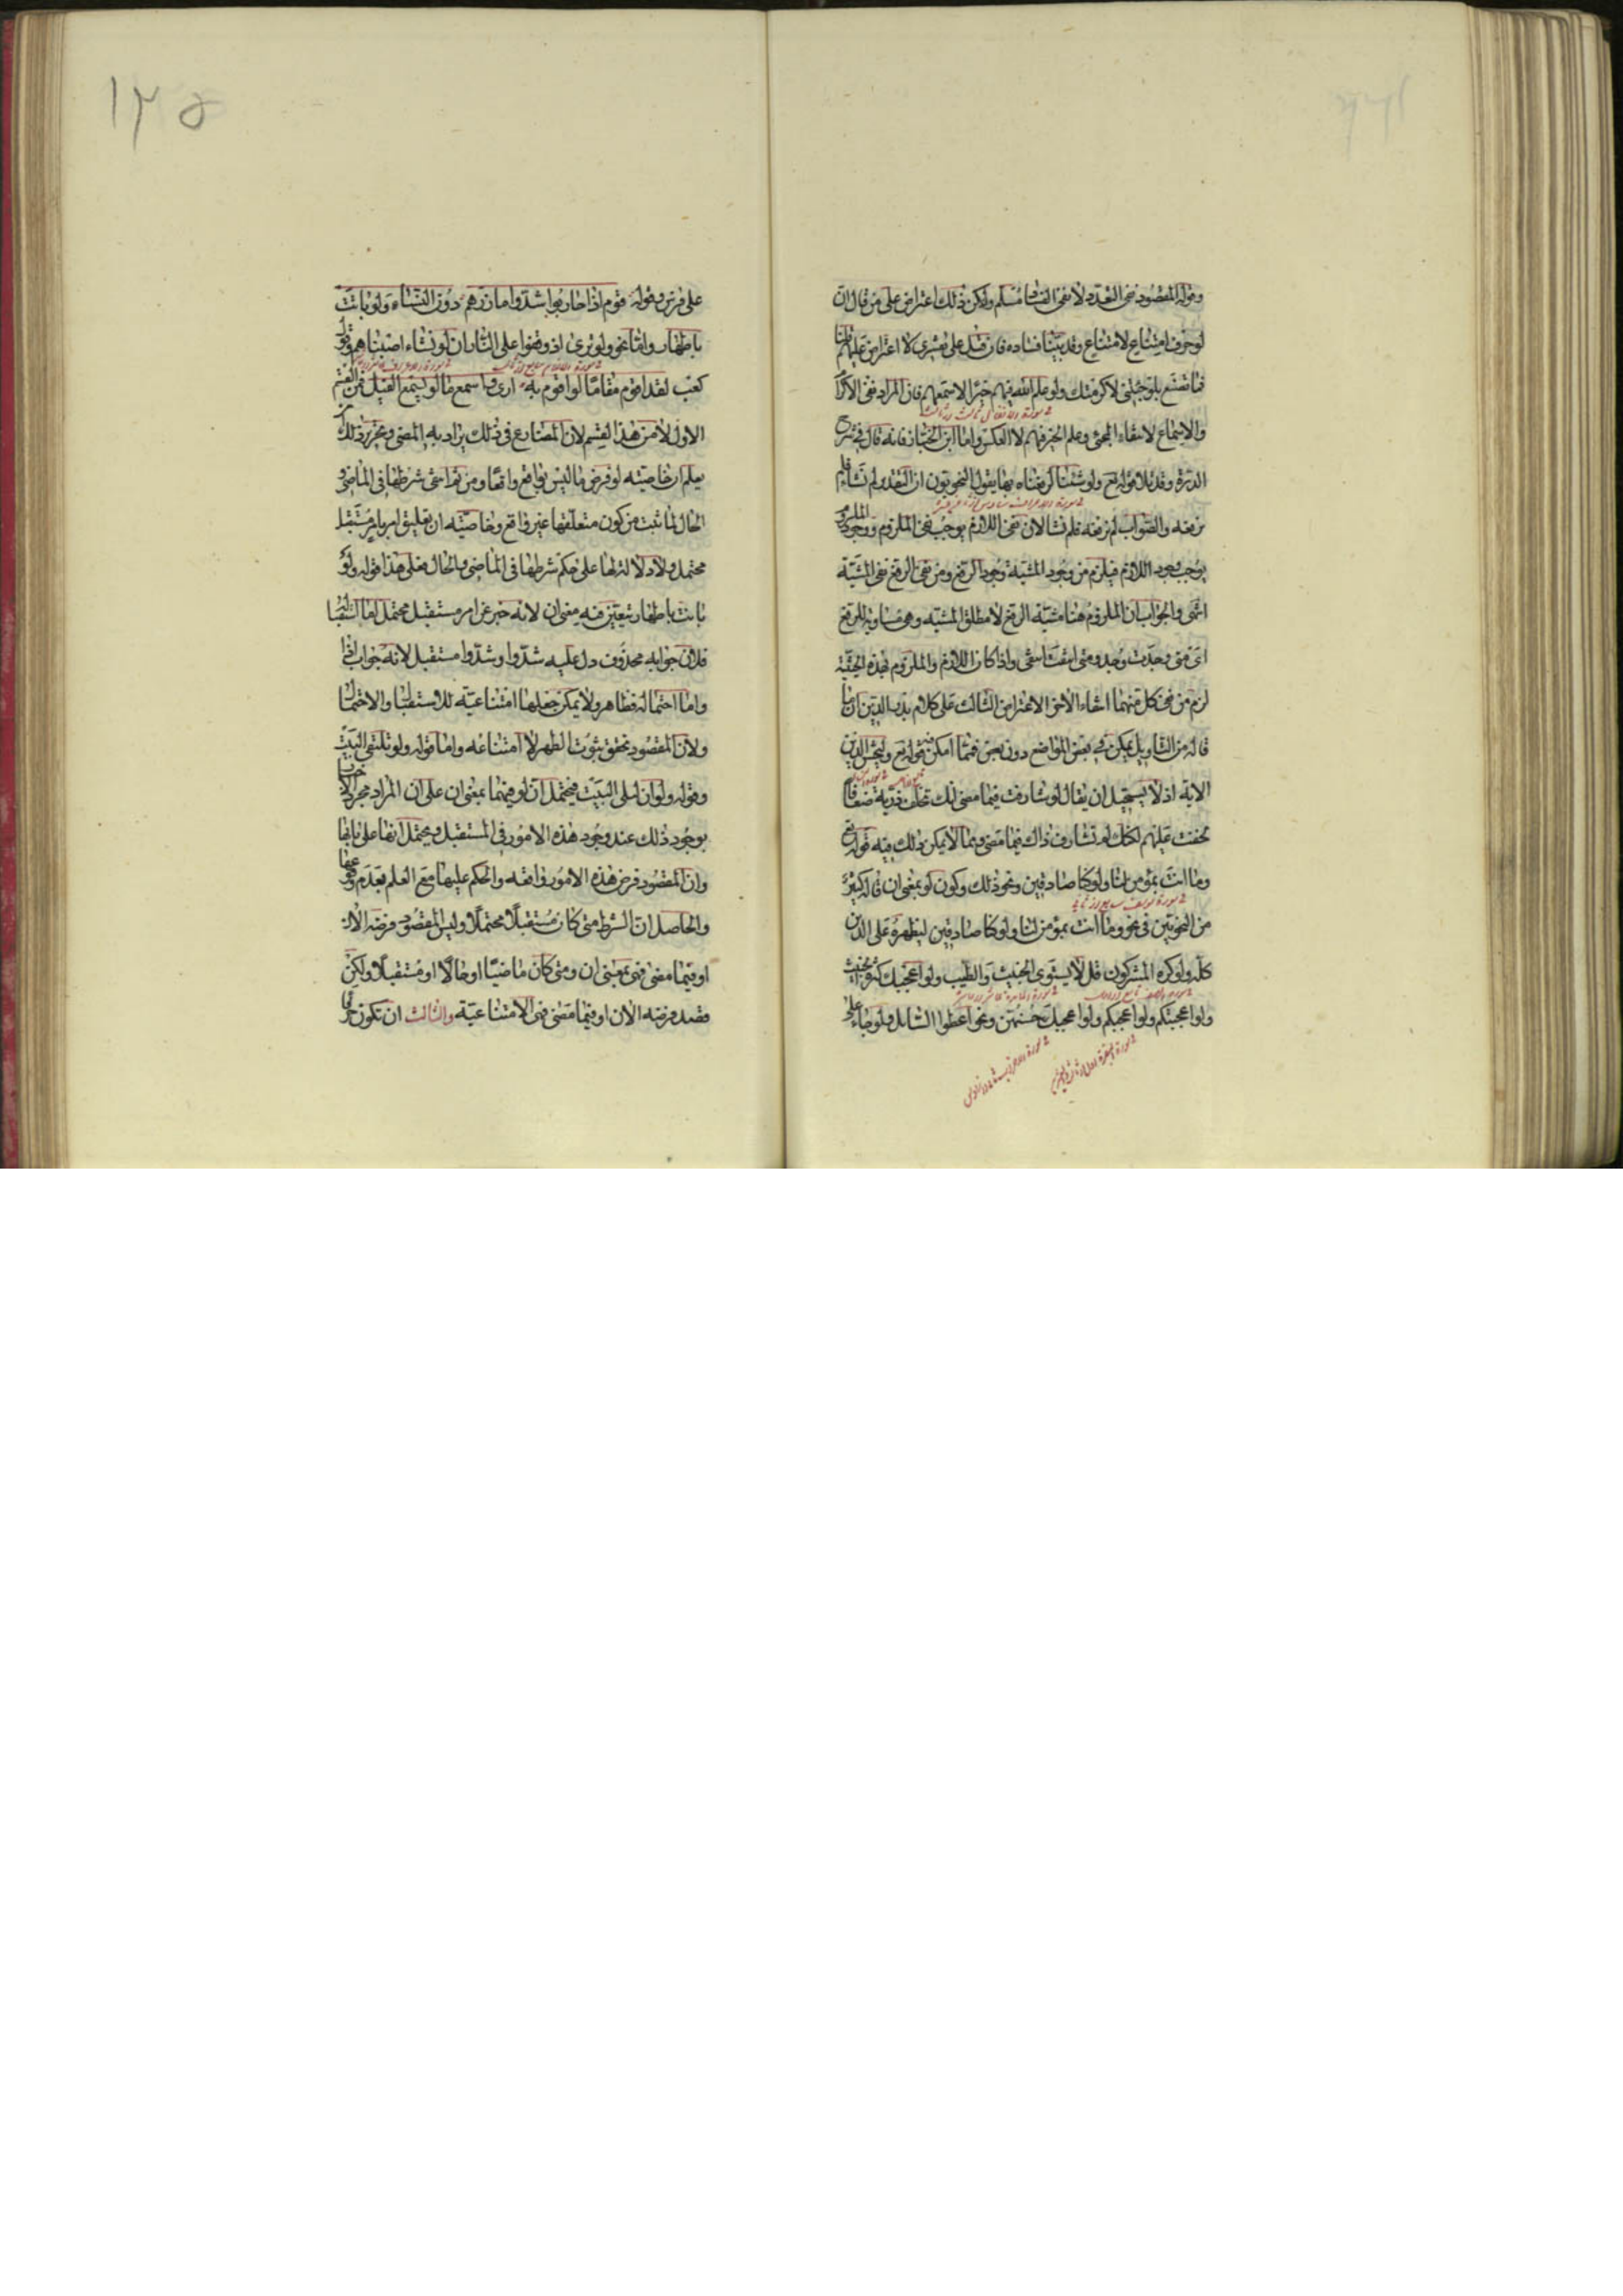 وقوله المقصود نفى التعدد لا نفى الفساد مسلم ولكن ذلك اعتراض على من قال ان
لو حرف امتناع لامتناع وقد بينا فساده فان قيل على تفسيرى لا اعتراض عليهم قلنا
فما تصنع بلو جئتنى لاكرمتك ولو علم الله فيهم خيرا لاسمعهم فان المراد نفى الاكرام
والاسماع لانتفاء المجئ وعلم الخير فيهم لا العكس واما ابن الخباز فانه قال فى شرح
الدرة وقد تلا قوله تع ولو شئنا لرفعناه بها يقول النحويون ان التقدير لم نشاء فلم
نرفعه والصواب لم نرفعه فلم نشا لان نفى اللازم يوجب نفى الملزوم ووجود الملزوم
يوجب وجود اللازم فيلزم من وجود المشية وجود الرفع ومن نفى الرفع نفى المشية
انتهى والجواب ان الملزوم هنا مشية الرفع لا مطلق المشية وهى مساوية للرفع
اى متى وجدت وجد ومتى انتفت انتفى واذا كان اللازم والملزوم بهذه الحيثية
لزم من نفى كل منهما انتفاء الاخر الاعتراض الثالث على كلام بدر الدين ان ما
قاله من التاويل يمكن فى بعض المواضع دون بعض فمما امكن فيه قوله تع وليخش الذين
الاية اذ لا يستحيل ان يقال لو شارفت فيما مضى انك تخلف ذرية ضعافا
لخفت عليهم لكنك لم تشارف ذلك فيما مضى ومما لا يمكن ذلك فيه قوله تع
وما انت بمؤمن لنا ولو كنا صادقين ونحو ذلك وكون لو بمعنى ان قاله كثير
من النحويين فى نحو وما انت بمؤمن لنا ولو كنا صادقين ليظهره على الدين
كله ولو كره المشركون قل لا يستوى الخبيث والطيب ولو اعجبك كثرة الخبيث
ولو اعجبتكم ولو اعجبكم ولو اعجبك حسنهن ونحو اعطوا السائل ولو جاء على
على فرس وقوله قوم اذا حاربوا شدوا مازرهم دون النساء ولو باتت
باطهار واما نحو ولو ترى اذ وقفوا على النار ان لو نشاء اصبناهم وقول
كعب لقد اقوم مقاما لو اقوم به ارى واسمع ما لو يسمع الفيل فمن القسم
الاول لا من هذا القسم لان المضارع فى ذلك يراد به المضى وتحرير ذلك ان
يعلم ان خاصية لو فرض ما ليس بواقع واقعا ومن ثم انتفى شرطها فى الماضى و
الحال لما ثبت من كون متعلقها غير واقع وخاصية ان تعليق امر بامر مستقبل
محتمل ولا دلالة لها على حكم شرطها فى الماضى والحال فعلى هذا قوله ولو
باتت باطهار يتعين فيه معنى ان لانه خبر عن امر مستقبل محتمل اما استقباله
فلان جوابه محذوف دل عليه شدوا وشدوا مستقبل لانه جواب اذا
واما احتماله فظاهر ولا يمكن جعلها امتناعية للاستقبال والاحتمال
ولان المقصود تحقق ثبوت الطهر لا امتناعه واما قوله ولو تلتقى البيت
وقوله ولو ان ليلى البيت فيحتمل ان لو فيهما بمعنى ان على ان المراد مجرد الاخبار
بوجود ذلك عند وجود هذه الامور فى المستقبل ويحتمل انها على بابها
وان المقصود فرض هذه الامور واقعه والحكم عليها مع العلم بعدم وقوعها
والحاصل ان الشرط متى كان مستقبلا محتملا وليس المقصود فرضه الان
او فيما مضى فهى بمعنى ان ومتى كان ماضيا او حالا او مستقبلا ولكن
قصد فرضه الان او فيما مضى فهى الامتناعية والثالث ان تكون حرفا
١٣٥